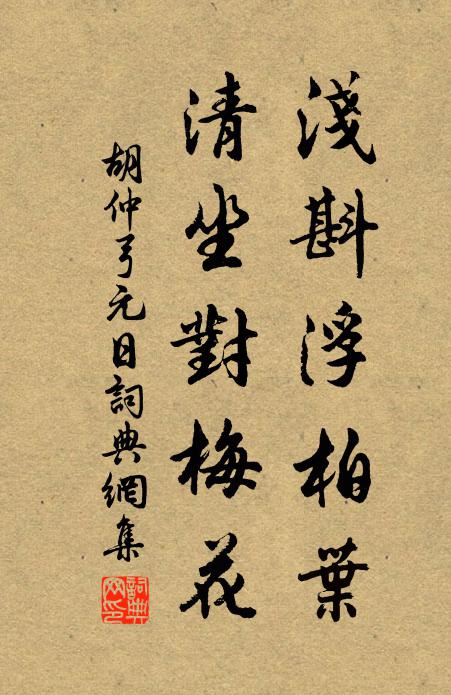 淺斟浮柏葉
清坐對梅花
胡仲弓元日詞典網集
詞典網印